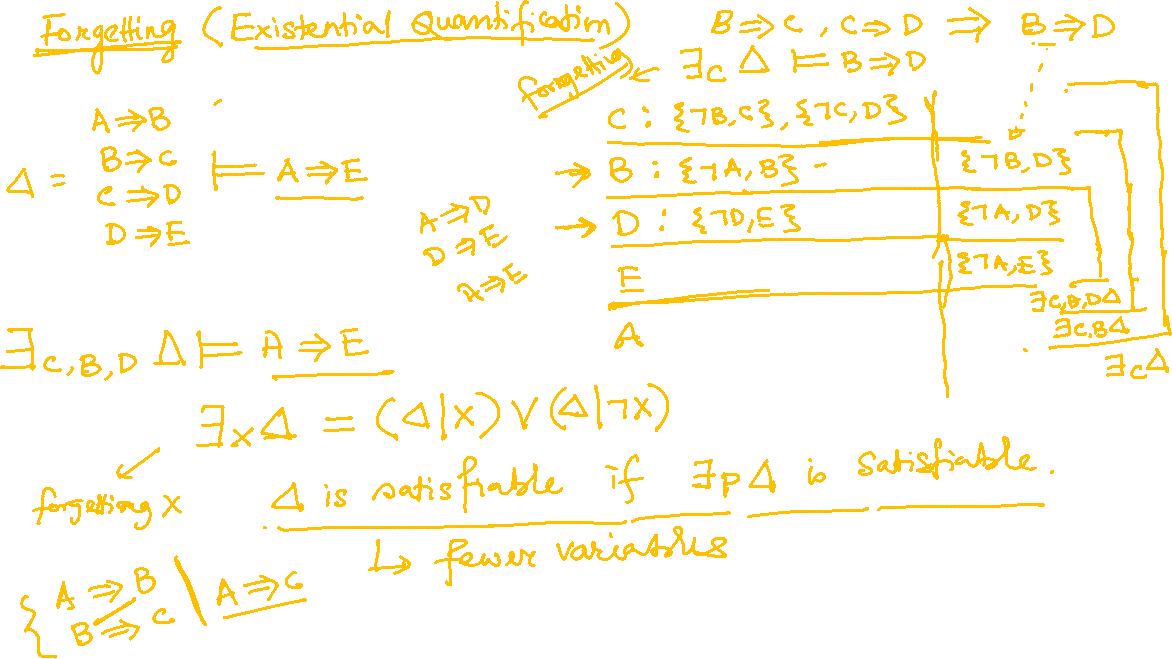 Forgetting (Existential Quantification)
B ⇒ C, C ⇒ D ⇒ B ⇒ D
forgetting ← ∃_C Δ ⊨ B ⇒ D
Δ =
A ⇒ B
B ⇒ C
C ⇒ D
D ⇒ E
⊨ A ⇒ E
A ⇒ D
D ⇒ E
A ⇒ E
C : {¬B, C}, {¬C, D}
→ B : {¬A, B} - {¬B, D}
→ D : {¬D, E} {¬A, D}
E {¬A, E}
A
∃C,B,D Δ
∃C,B Δ
∃C Δ
∃C,B,D Δ ⊨ A ⇒ E
∃x Δ = (Δ|X) ∨ (Δ|¬X)
forgetting X
Δ is satisfiable if ∃p Δ is satisfiable.
↳ fewer variables
{ A ⇒ B
B ⇒ C \ A ⇒ C